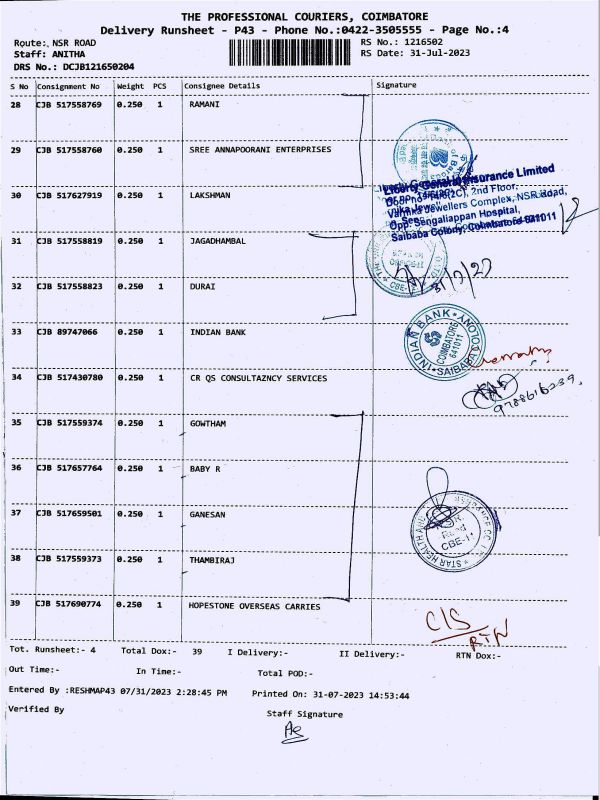 THE PROFESSIONAL COURIERS, COIMBATORE
Delivery Runsheet - P43 - Phone No.:0422-3505555 - Page No.:4
Route: NSR ROAD RS No.: 1216502
Staff: ANITHA RS Date: 31-Jul-2023
DRS No.: DCJB121650204
S No Consignment No Weight PCS Consignee Details Signature
28 CJB 517558769 0.250 1 RAMANI
29 CJB 517558760 0.250 1 SREE ANNAPOORANI ENTERPRISES
Liberty General Insurance Limited
2nd Floor,
30 CJB 517627919 0.250 1 LAKSHMAN
Varnika Jewellers Complex, NSR Road,
Opp. Sengaliappan Hospital,
Saibaba Colony, Coimbatore 641011
31 CJB 517558819 0.250 1 JAGADHAMBAL
31/7/23
32 CJB 517558823 0.250 1 DURAI
33 CJB 89747066 0.250 1 INDIAN BANK
INDIAN BANK
COIMBATORE
641011
SAIBABA COLONY
34 CJB 517430780 0.250 1 CR QS CONSULTAZNCY SERVICES
35 CJB 517559374 0.250 1 GOWTHAM
36 CJB 517657764 0.250 1 BABY R
37 CJB 517659501 0.250 1 GANESAN
Road
CBE-11
STAR HEALTH AND
38 CJB 517559373 0.250 1 THAMBIRAJ
39 CJB 517690774 0.250 1 HOPESTONE OVERSEAS CARRIES
C/S
RTN
Tot. Runsheet:- 4 Total Dox:- 39 I Delivery:- II Delivery:- RTN Dox:-
Out Time:- In Time:- Total POD:-
Entered By :RESHMAP43 07/31/2023 2:28:45 PM Printed On: 31-07-2023 14:53:44
Verified By Staff Signature